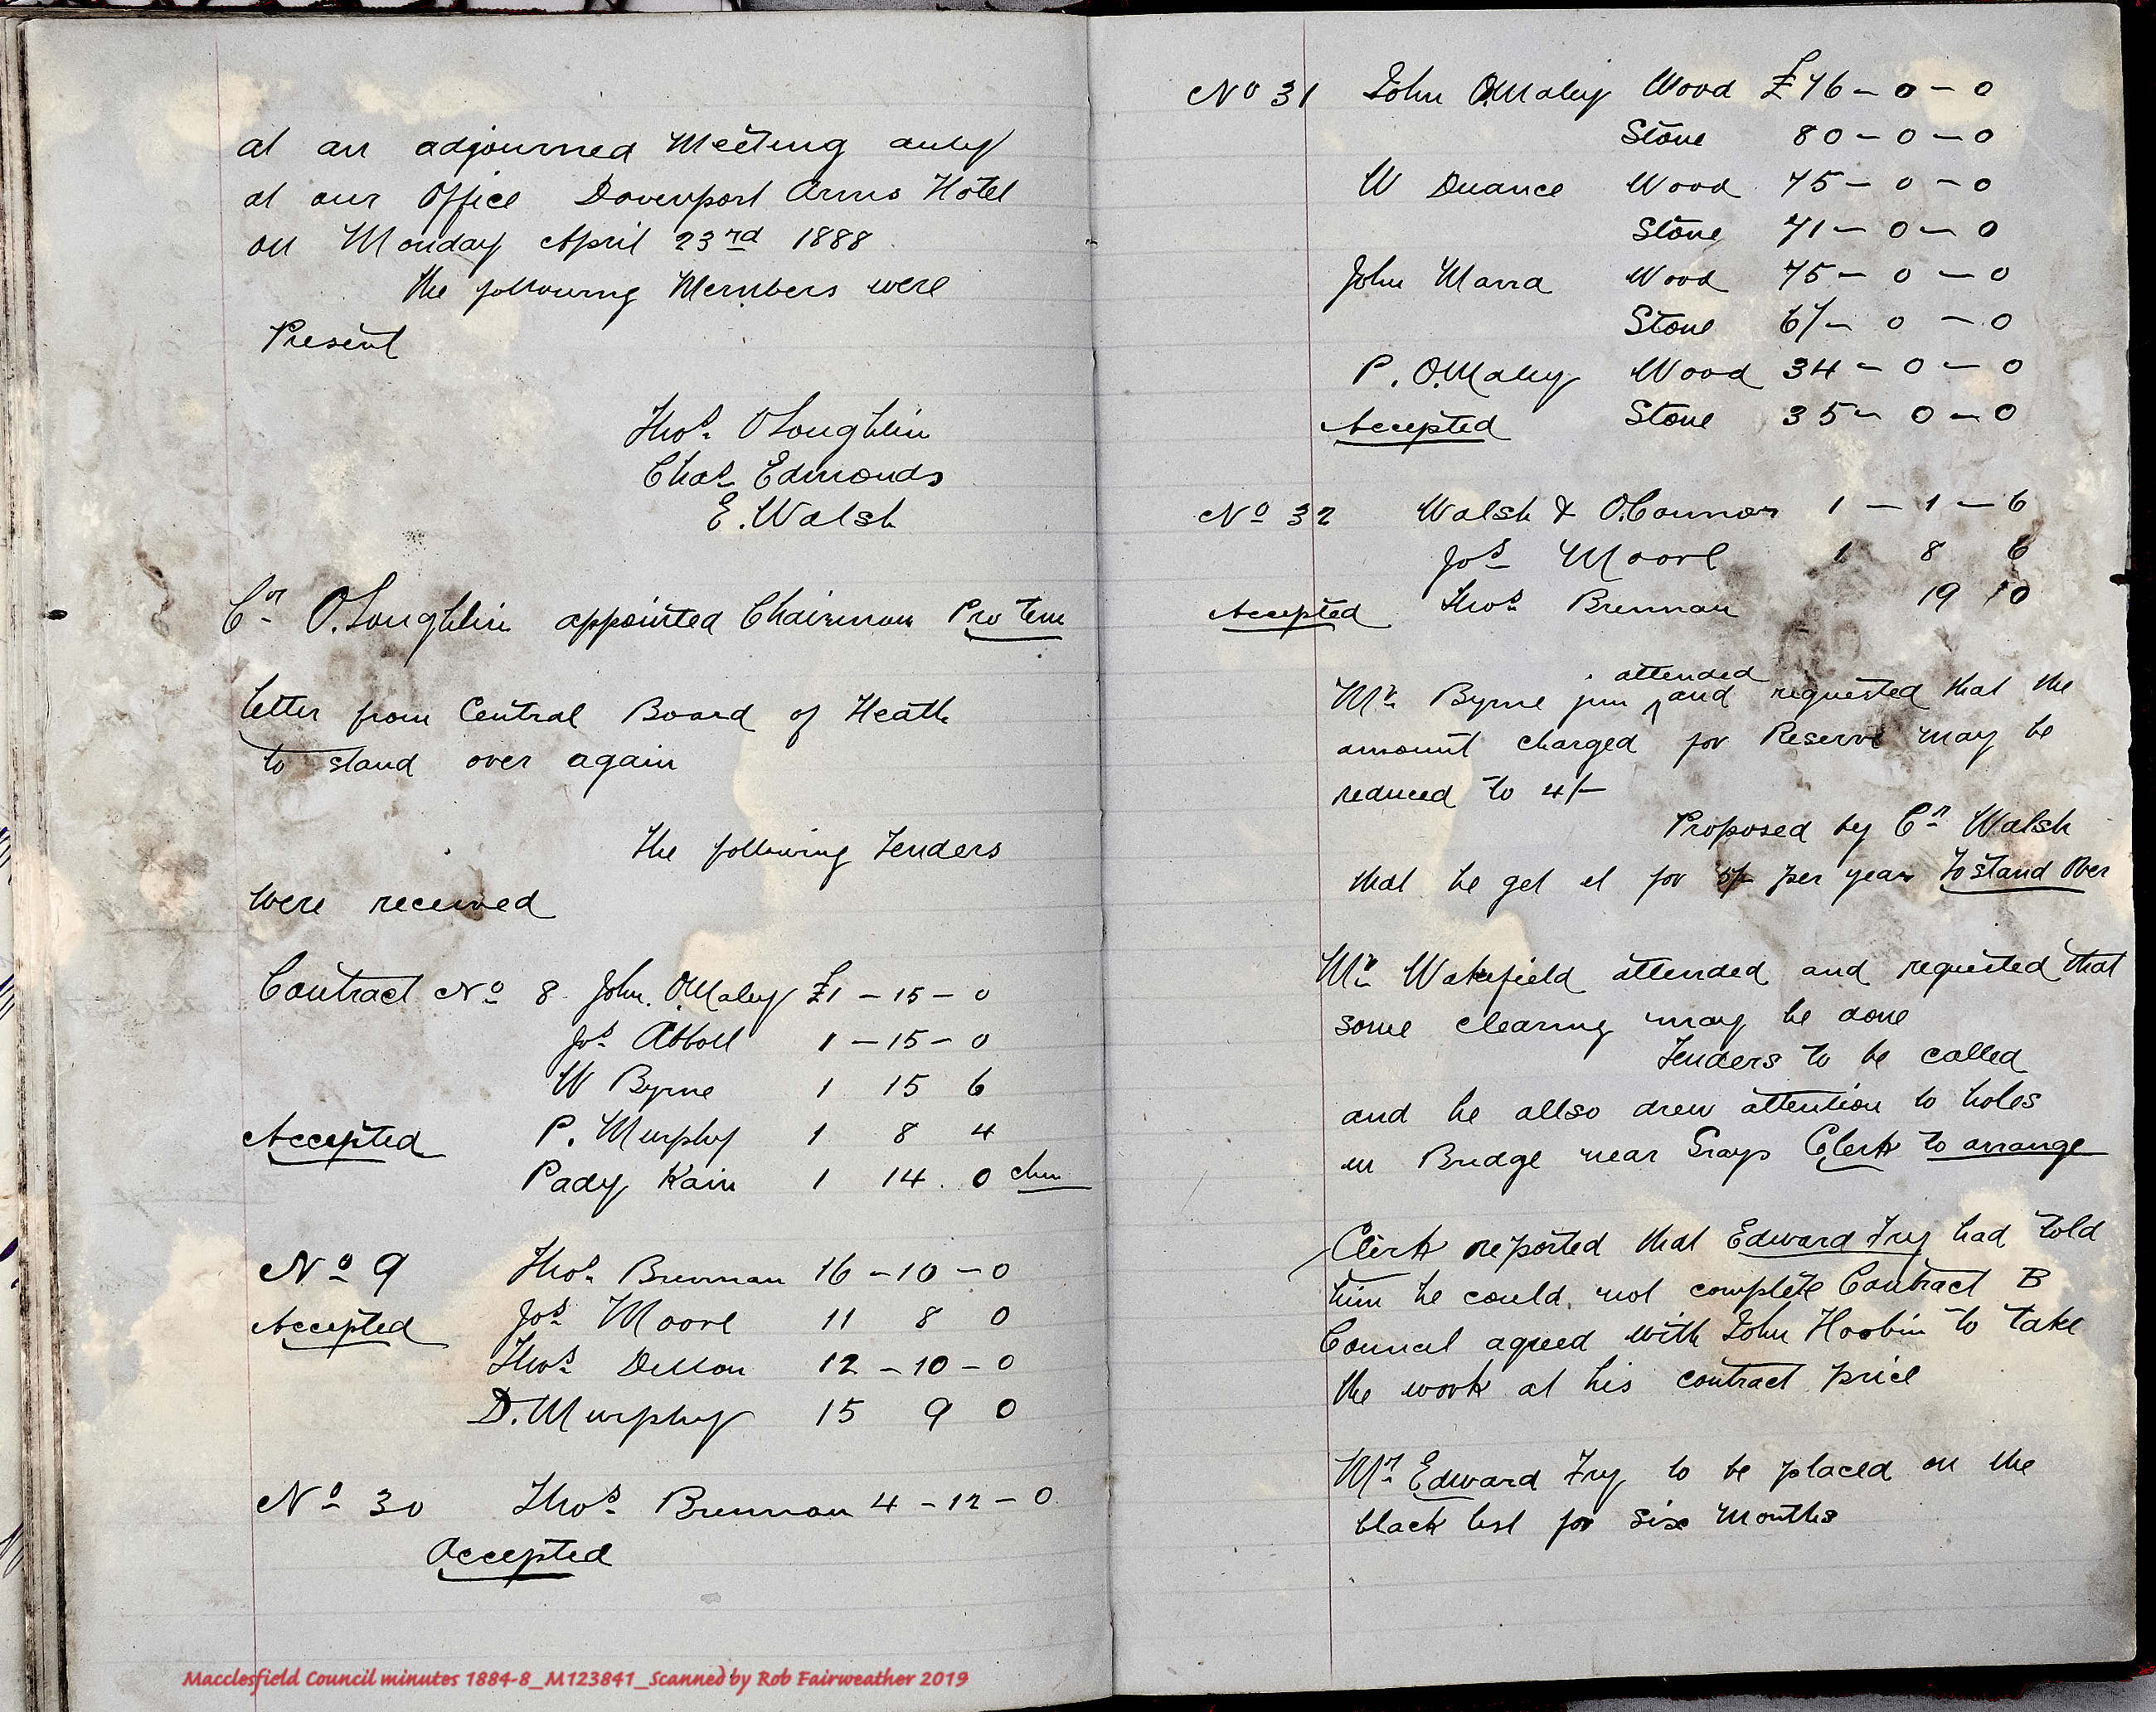 at an adjourned Meeting duly
at our Office Davenport Arms Hotel
on Monday April 23rd 1888
the following Members were
Present
Thos. OLoughlin
Chas. Edmonds
E. Walsh
Cr O.Loughlin appointed Chairman Pro tem
Letter from Central Board of Heath
to stand over again
The following Tenders
were received
Contract No 8. John. O.Maley £1 - 15 - 0
Jos Abbott 1 - 15 - 0
W Byrne 1 15 6
Accepted P. Murphy 1 8 4
Pady Kain 1 14. 0
No 9 Thos. Brennan 16 - 10 - 0
Accepted Jos Moore 11 8 0
Thos Dillon 12 - 10 - 0
D. Murphy 15 9 0
No 30 Thos. Brennan 4 - 12 - 0
Accepted
Macclesfield Council minutes 1884-8_M123841_Scanned by Rob Fairweather 2019
No 31 John O.Maley Wood £76 - 0 - 0
Stone 80 - 0 - 0
W Duance Wood 75 - 0 - 0
Stone 71 - 0 - 0
John Marra Wood 75 - 0 - 0
Stone 67 - 0 - 0
P. O.Maley Wood 34 - 0 - 0
Accepted Stone 35 - 0 - 0
No 32 Walsh & O.Connor 1 - 1 - 6
Jos Moore 1 8 6
Accepted Thos. Brennan 19 10
attended
Mr. Byrne jun and requested that the
amount charged for Reserve may be
reduced to 4/-
Proposed by Cr Walsh
that he get it for per year To stand Over
Mr Wakefield attended and requested that
some clearing may be done
Tenders to be called
and he allso drew attention to holes
in Bridge near Grays Clerk to arrange
Clerk reported that Edward Fry had told
him he could. not complete Contract B
Council agreed with John Hoobin to take
the work at his contract price
Mr Edward Fry to be placed on the
black list for six months